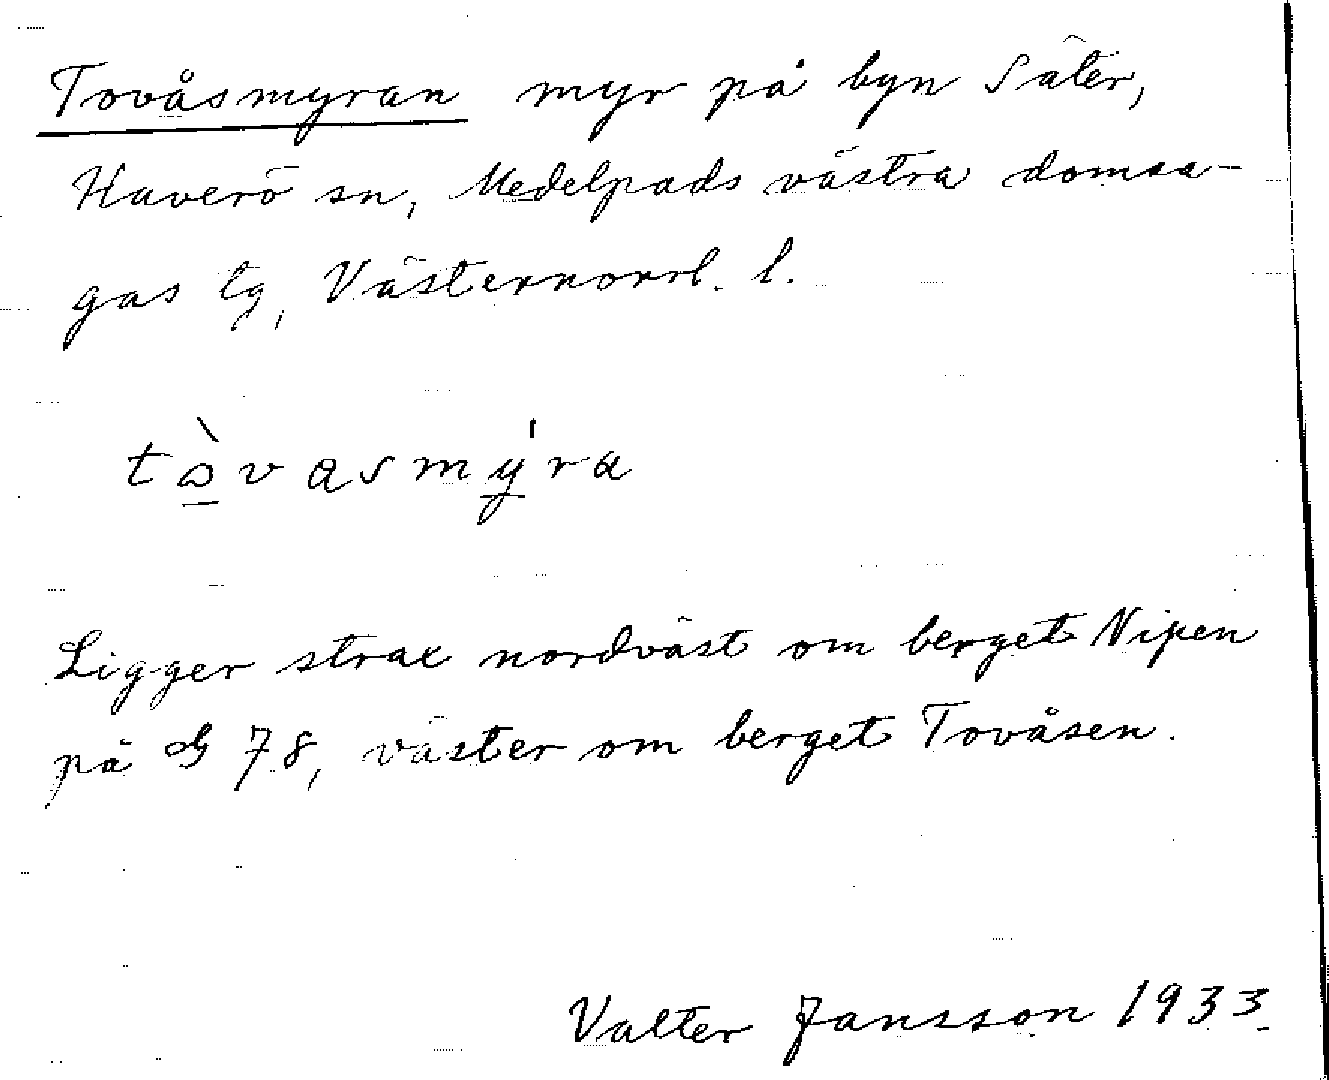 Tovåsmyran myr på byn Säter,
Haverö sn, Medelpads västra domsa-
gas tg, Västernorrl. l.
tòvasmýra
Ligger strax nordväst om berget Nipen
på G 78, väster om berget Tovåsen.
Valter Jansson 1933